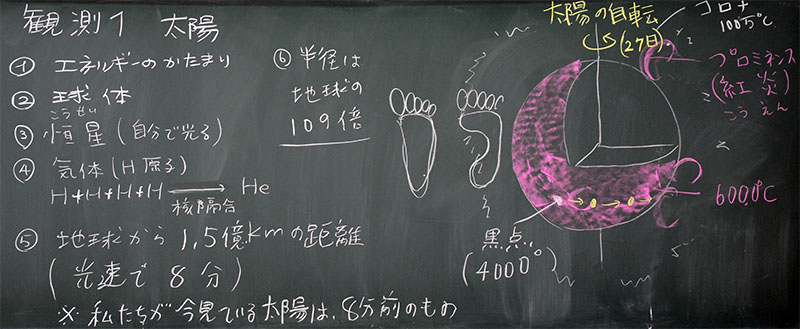 観測1 太陽
① エネルギーのかたまり
② 球体
こうせい
③ 恒星(自分で光る)
④ 気体(H原子)
H+H+H+H → He
核融合
⑤ 地球から1.5億kmの距離
(光速で8分)
※私たちが今見ている太陽は、8分前のもの
⑥ 半径は
地球の
109倍
太陽の自転
(27日)
コロナ
100万℃
プロミネンス
(紅炎)
こうえん
6000℃
黒点
(4000°)